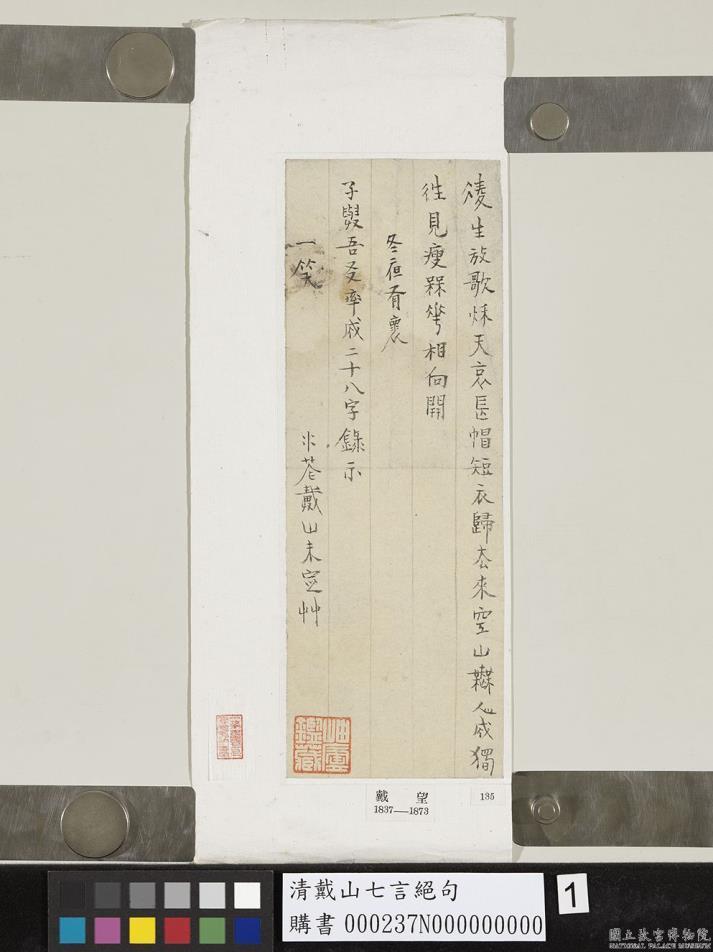 淩生放歌烌天哀長帽短衣歸厺來空山无人成獨
往見瘦槑花相向開
冬夜有褱
子與吾友率成二十八字錄示
一笑
戴山未定艸
岫雲鑑藏
戴 望
1837—1873
135
清戴山七言絕句
購書 000237N000000000
1
國立故宮博物院
NATIONAL PALACE MUSEUM